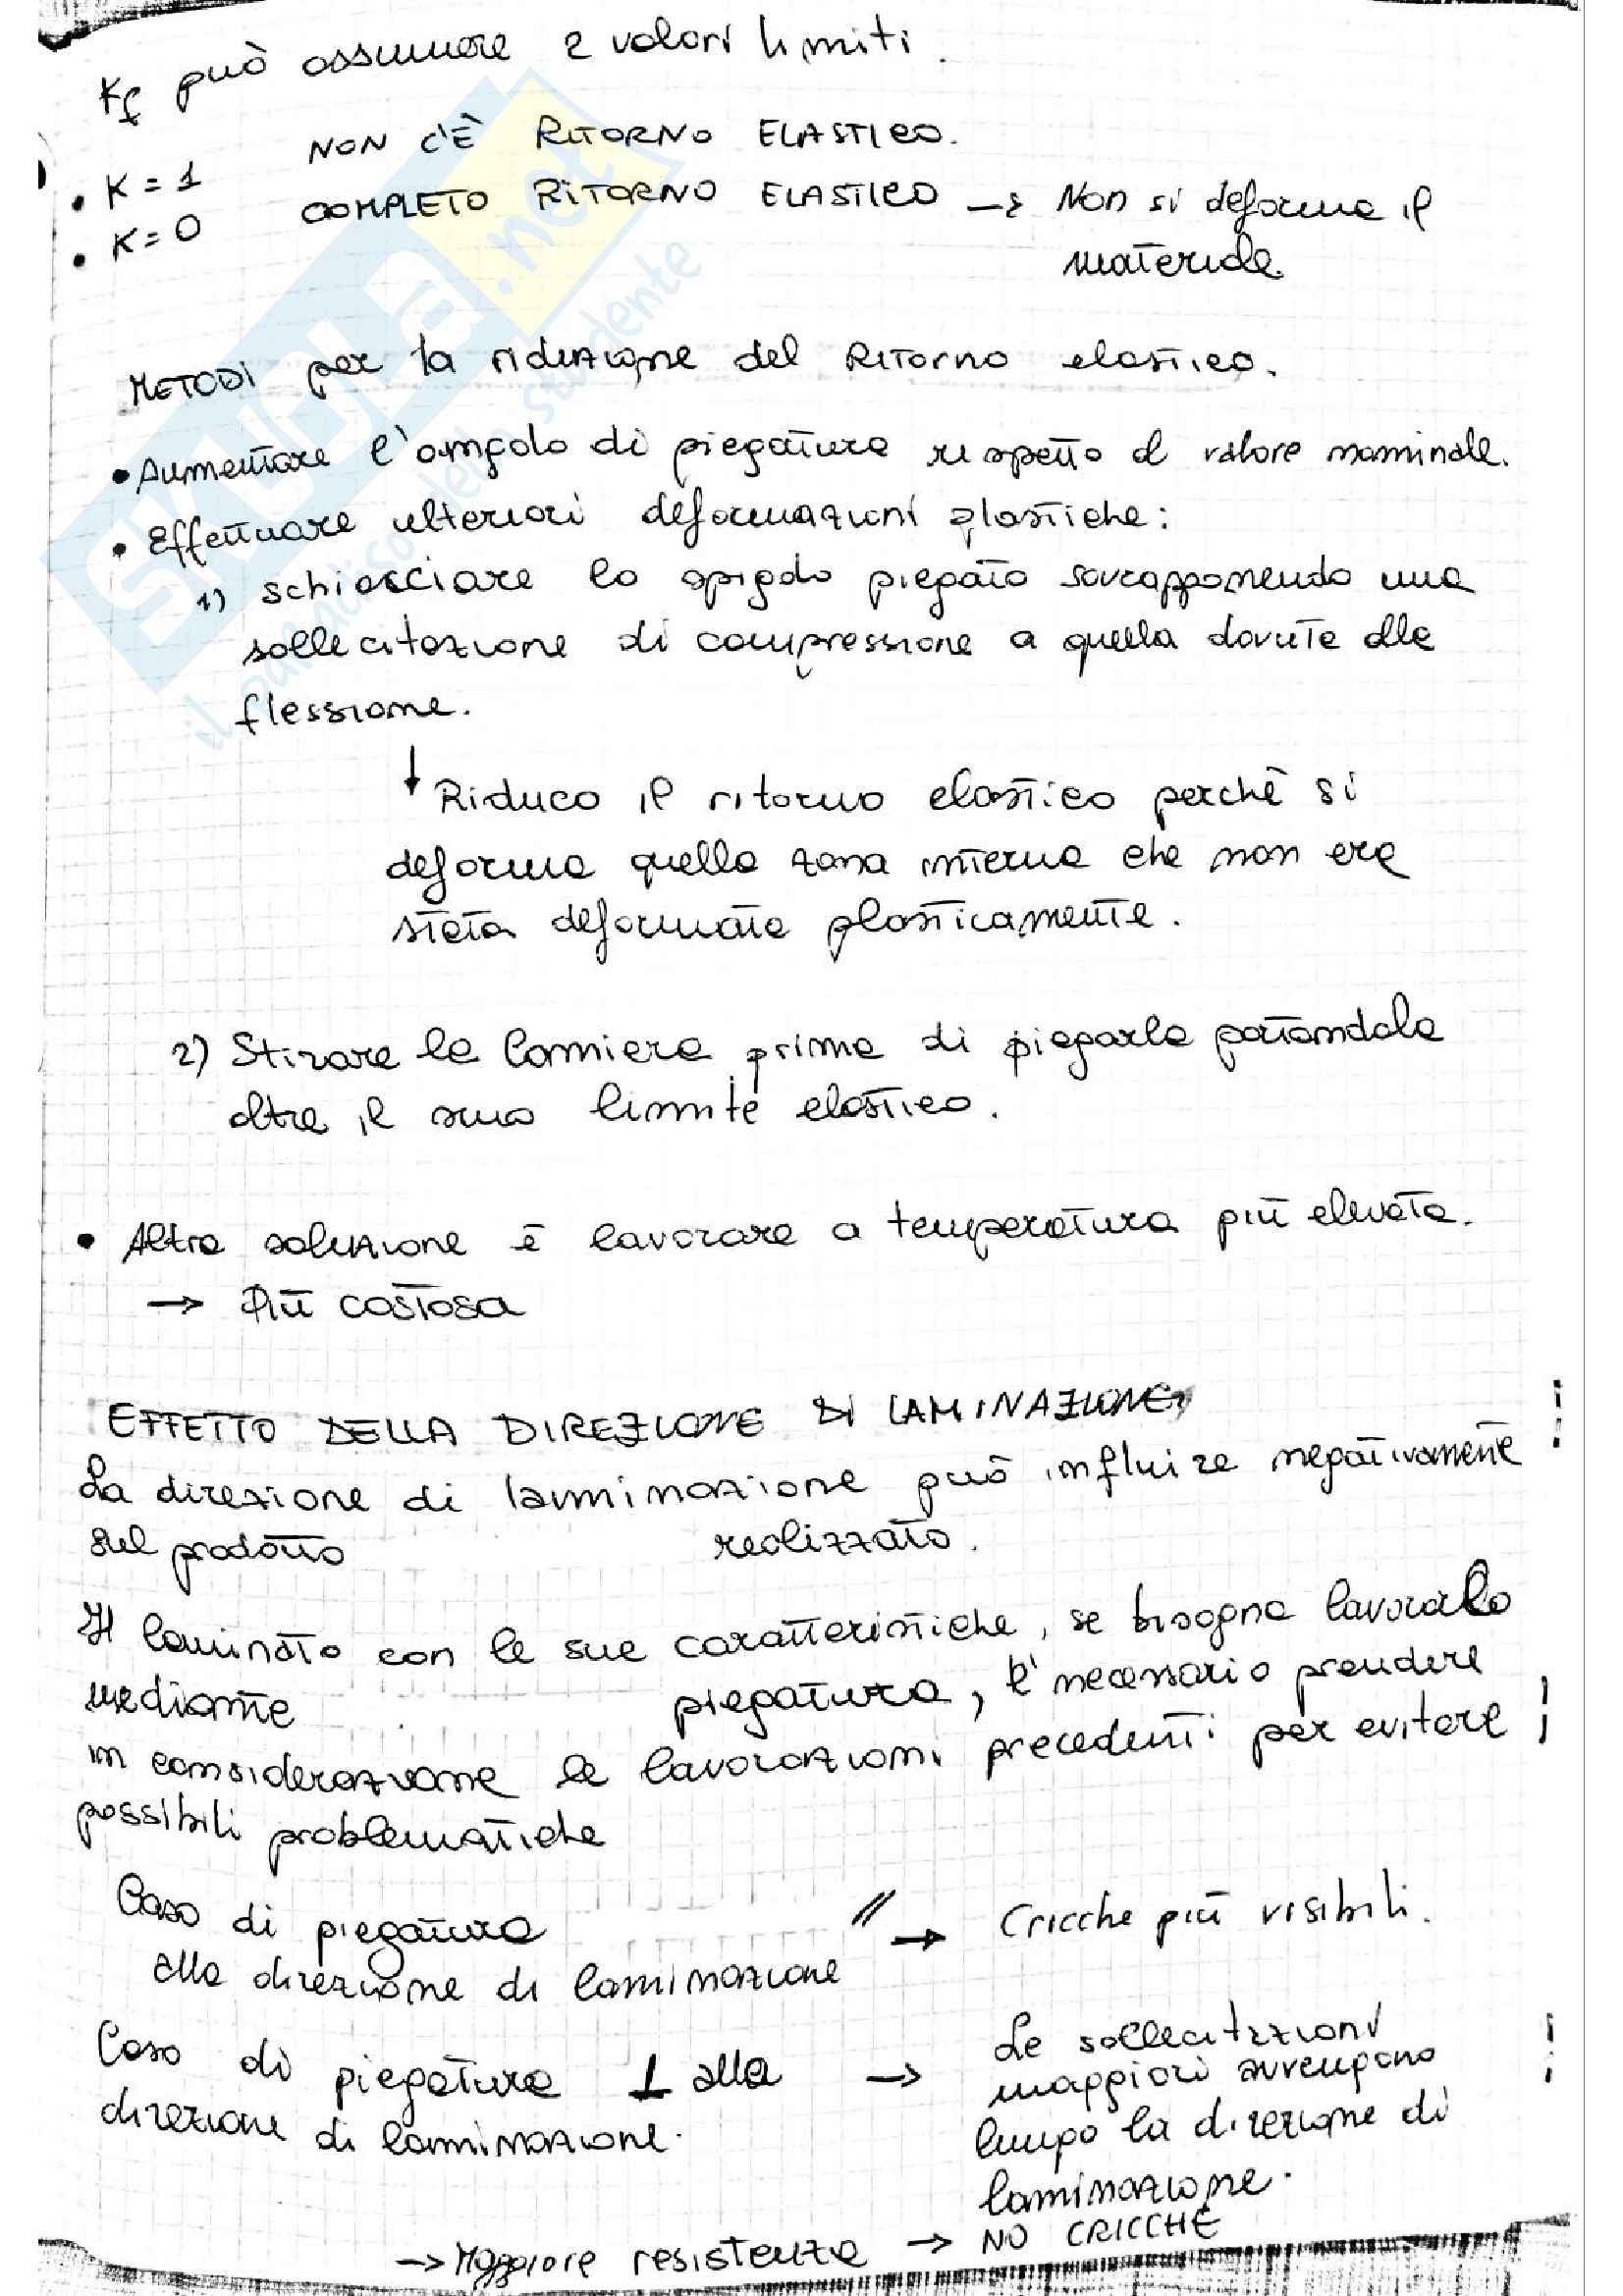 Kf può assumere 2 valori limiti.
• K = 1 NON C'È RITORNO ELASTICO.
• K = 0 COMPLETO RITORNO ELASTICO → Non si deforma il
materiale.
METODI per la riduzione del Ritorno elastico.
• Aumentare l'angolo di piegatura rispetto al valore nominale.
• Effettuare ulteriori deformazioni plastiche:
1) schiacciare lo spigolo piegato sovrapponendo una
sollecitazione di compressione a quella dovuta alla
flessione.
↓ Riduco il ritorno elastico perchè si
deforma quella zona interna che non era
stata deformata plasticamente.
2) Stirare la lamiera prima di piegarla portandola
oltre il suo limite elastico.
• Altra soluzione è lavorare a temperatura più elevata.
→ Più costosa
EFFETTO DELLA DIREZIONE DI LAMINAZIONE
La direzione di laminazione può influire negativamente
sul prodotto realizzato.
Il laminato con le sue caratteristiche, se bisogna lavorarlo
mediante piegatura, è necessario prendere
in considerazione le lavorazioni precedenti per evitare
possibili problematiche
Caso di piegatura // → Cricche più visibili.
alla direzione di laminazione
Caso di piegatura ⊥ alla → Le sollecitazioni
direzione di laminazione. maggiori avvengono
lungo la direzione di
laminazione.
→ Maggiore resistenza → NO CRICCHE
SKUOLA.net
il paradiso dello studente